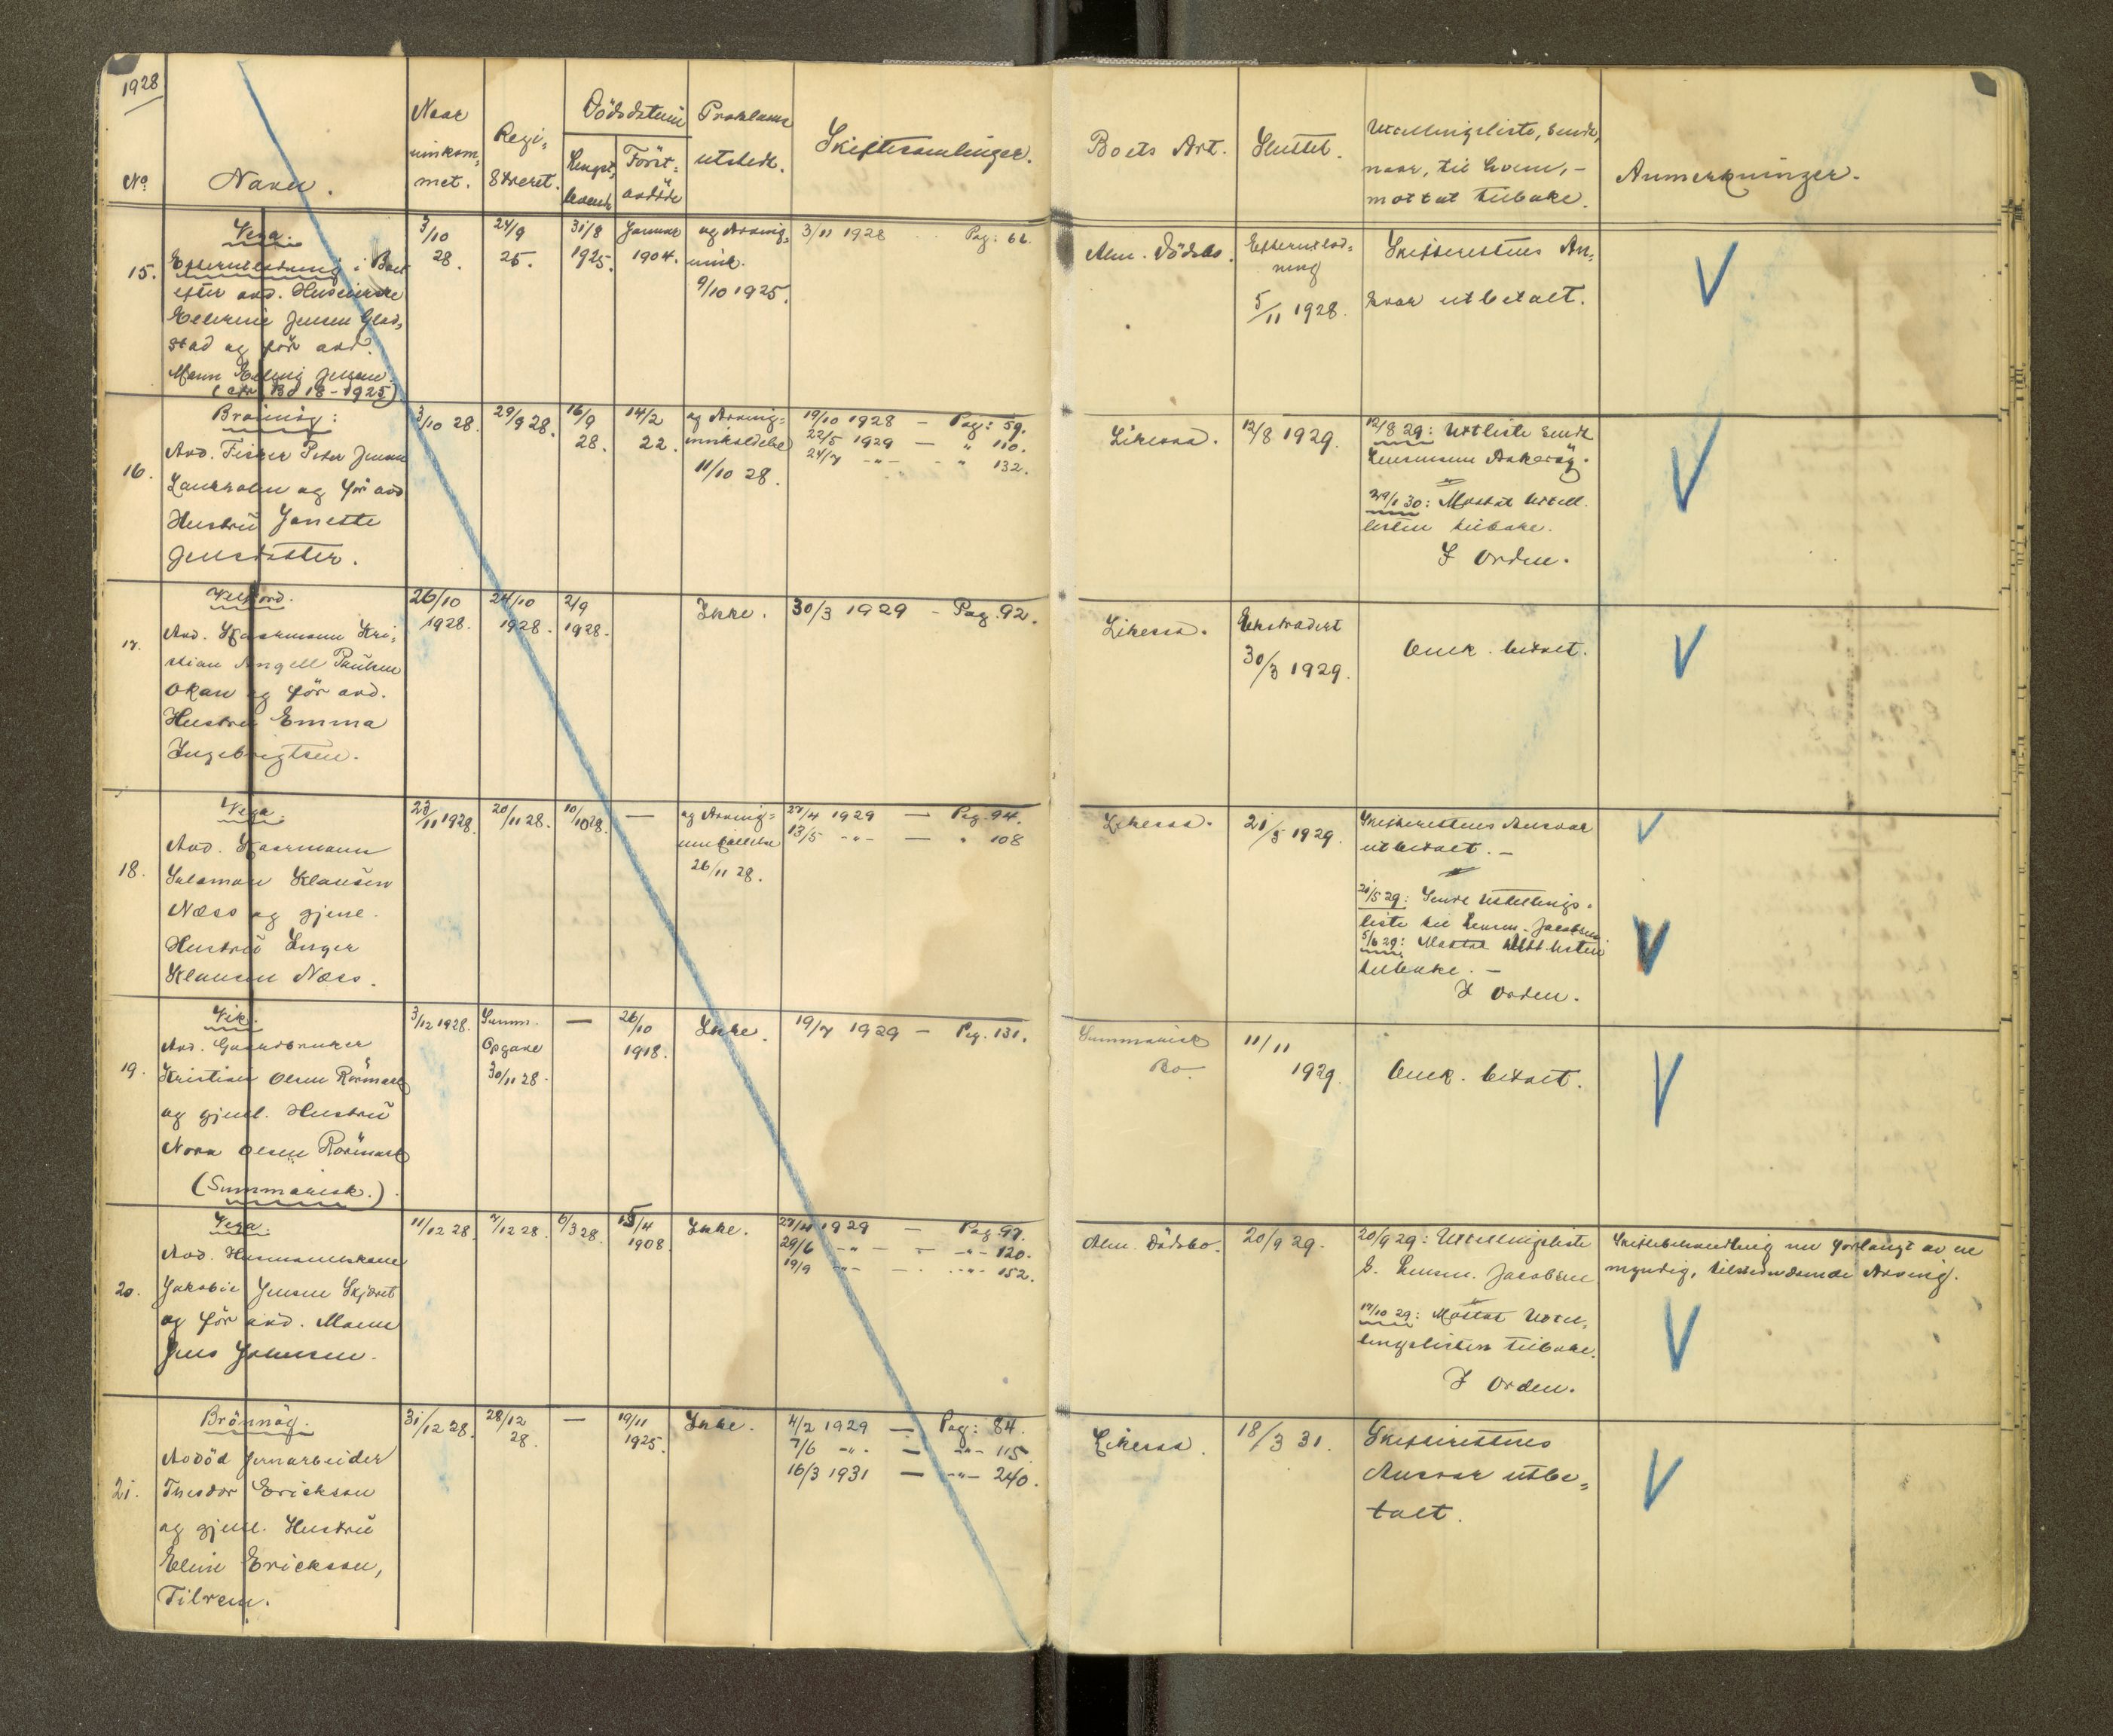 1928
No
Navn.
Naar
innkom-
met.
Regi-
streret.
Dödsdatum
Lengst-
levende
Först-
avdöde
Proklama
utstedt.
Skiftesamlinger.
Boets Art.
Sluttet.
Utellingsliste, sendt,
naar, til hvem, -
mottat tilbake.
Anmerkninger.
15.
Vega.
Efterutlodning i Boet
efter avd. Huseierske
Jensen Glad-
stad og för avd.
Mann Jensen
(cfr. Bo 18 - 1925)
3/10
28.
24/9
25.
31/8
1925.
Januar
1904.
og Arving-
innk.
9/10 1925.
3/11 1928 Pag: 66.
Alm. Dödsbo.
Efterutlod-
ning
5/11 1928.
Skifterettens An-
svar utbetalt.
16.
Brönnöy:
Avd. Fisker Peter Jensen
og för avd
Hustru Janette
Jensdatter.
3/10 28.
29/9 28.
16/9
28.
14/2
22.
og Arving-
innkaldelse
11/10 28.
19/10 1928 - Pag: 59.
22/5 1929 - " 110.
24/7 -"- - " 132.
Likessa.
12/8 1929.
12/8 29: Utliste sendt
Lensmann
29/1 30: Mottat Utell.
listen tilbake.
I Orden.
17.
Velfjord.
Avd. Kaarmann Kri-
stian Angell Paulsen
Okan og för avd.
Hustru Emma
Ingebrigtsen.
26/10
1928.
24/10
1928.
2/9
1928.
Ikke.
30/3 1929 - Pag. 92.
Likessa.
Ekstradert
30/3 1929.
Omk. betalt.
18.
Vega.
Avd. Kaarmann
Salamon Klausen
Næss og gjenl.
Hustru Inger
Klausen Næss.
23/11 1928.
20/11 28.
10/10 28.
—
og Arving-
innkallelse
26/11 28.
27/4 1929 — Pag. 94.
13/5 -"- — " 108
Likessa.
21/5 1929.
Skifterettens Ansvar
utbetalt. -
21/5 29: Sendt Utellings-
liste til Lensm. Jacobsen
5/6 29: Mottat Utell. listen
tilbake. -
I Orden.
19.
Vik.
Avd. Gaardbruker
Kristian Olsen Rörmark
og gjenl. Hustru
Nora Olsen Rörmark
(Summarisk.)
3/12 1928.
Summ.
Opgave
30/11 28.
—
26/10
1918.
Ikke.
19/7 1929 - Pag. 131.
Summarisk
Bo.
11/11
1929.
Omk. betalt.
20.
Vega.
Avd. Husmannskone
Jakobie Jensen Skjæret
og för avd. Mann
Jens Johnsen.
11/12 28.
7/12 28.
6/3 28.
15/4
1908.
Ikke.
27/4 1929 — Pag. 97.
29/6 -"- - - -"- 120.
19/9 -"- - -"- 152.
Alm. Dödsbo.
20/9 29.
20/9 29: Utellingsliste
s. Lensm. Jacobsen
17/10 29: Mottat Utel-
lingslisten tilbake.
I Orden.
Skiftebehandling nu forlangt av en
myndig, tilstedeværende Arving.
21.
Brönnöy.
Avdöd Jernarbeider
Theodor Erickson
og gjenl. Hustru
Eline Erickson,
Tilrem.
31/12 28.
28/12
28.
—
19/11
1925.
Ikke.
4/2 1929 — Pag: 84.
7/6 -"- — -"- 115.
16/3 1931 — -"- 240.
Likessa.
18/3 31.
Skifterettens
Ansvar utbe-
talt.